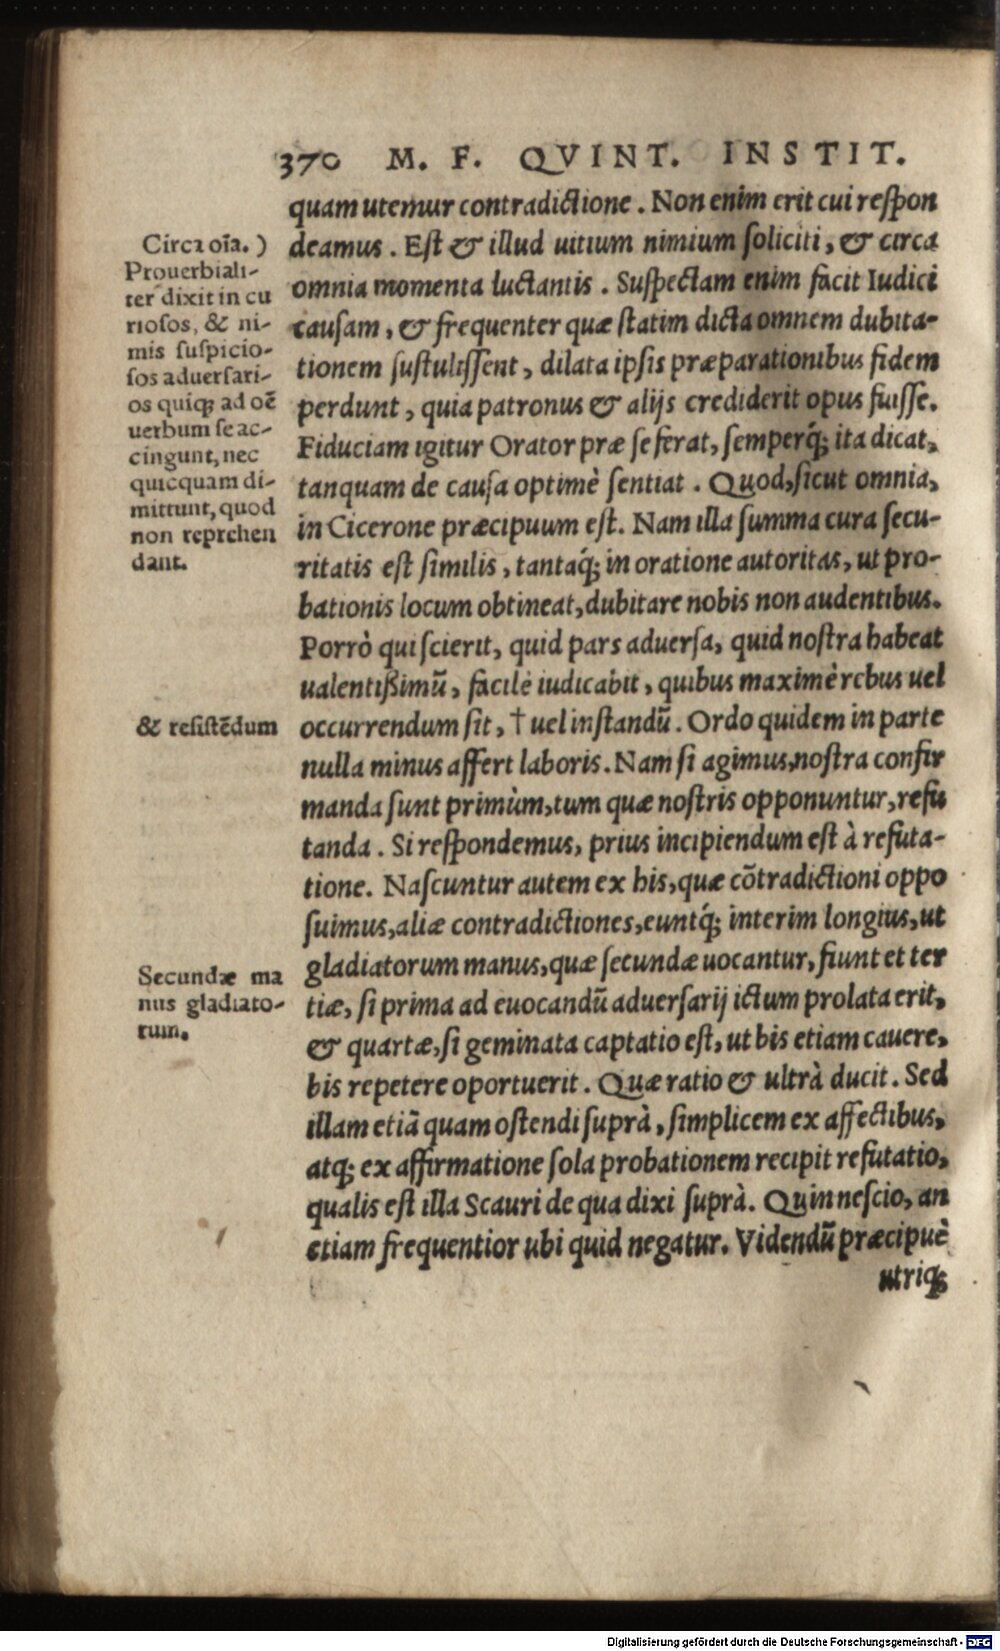 370 M. F. QVINT. INSTIT.
quam utemur contradictione. Non enim erit cui respon
deamus. Est & illud uitium nimium soliciti, & circa
omnia momenta luctantis. Suspectam enim facit Iudici
causam, & frequenter quæ statim dicta omnem dubita-
tionem sustulissent, dilata ipsis præparationibus fidem
perdunt, quia patronus & alijs crediderit opus fuisse.
Fiduciam igitur Orator præ se ferat, semperq́; ita dicat,
tanquam de causa optimè sentiat. Quod, sicut omnia,
in Cicerone præcipuum est. Nam illa summa cura secu-
ritatis est similis, tantaq́; in oratione autoritas, ut pro-
bationis locum obtineat, dubitare nobis non audentibus.
Porrò qui scierit, quid pars aduersa, quid nostra habeat
ualentißimũ, facilè iudicabit, quibus maximè rebus uel
occurrendum sit, † uel instandũ. Ordo quidem in parte
nulla minus affert laboris. Nam si agimus, nostra confir
manda sunt primùm, tum quæ nostris opponuntur, refu
tanda. Si respondemus, prius incipiendum est à refuta-
tione. Nascuntur autem ex his, quæ cõtradictioni oppo
suimus, aliæ contradictiones, euntq́; interim longius, ut
gladiatorum manus, quæ secundæ uocantur, fiunt et ter
tiæ, si prima ad euocandũ aduersarij ictum prolata erit,
& quartæ, si geminata captatio est, ut bis etiam cauere,
bis repetere oportuerit. Quæ ratio & ultrà ducit. Sed
illam etiã quam ostendi suprà, simplicem ex affectibus,
atq; ex affirmatione sola probationem recipit refutatio,
qualis est illa Scauri de qua dixi suprà. Quin nescio, an
etiam frequentior ubi quid negatur. Videndũ præcipuè
utriq;
Circa oĩa.)
Prouerbiali-
ter dixit in cu
riosos, & ni-
mis suspicio-
sos aduersari-
os quiq; ad oẽ
uerbum se ac-
cingunt, nec
quicquam di-
mittunt, quod
non reprehen
dant.
& resistẽdum
Secundæ ma
nus gladiato-
rum.
Digitalisierung gefördert durch die Deutsche Forschungsgemeinschaft - DFG